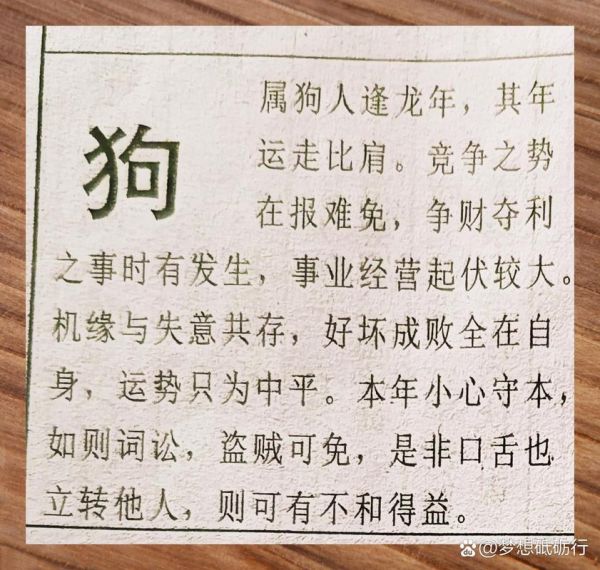 狗
属狗人逢龙年，其年
运走比肩。竞争之势
在报难免，争财夺利
之事时有发生，事业经营起伏较大。
机缘与失意共存，好坏成败全在自
身，运势只为中平。本年小心守本，
如则词讼，盗贼可免，是非口舌也
立转他人，则可有不和得益。
@梦想砥砺行